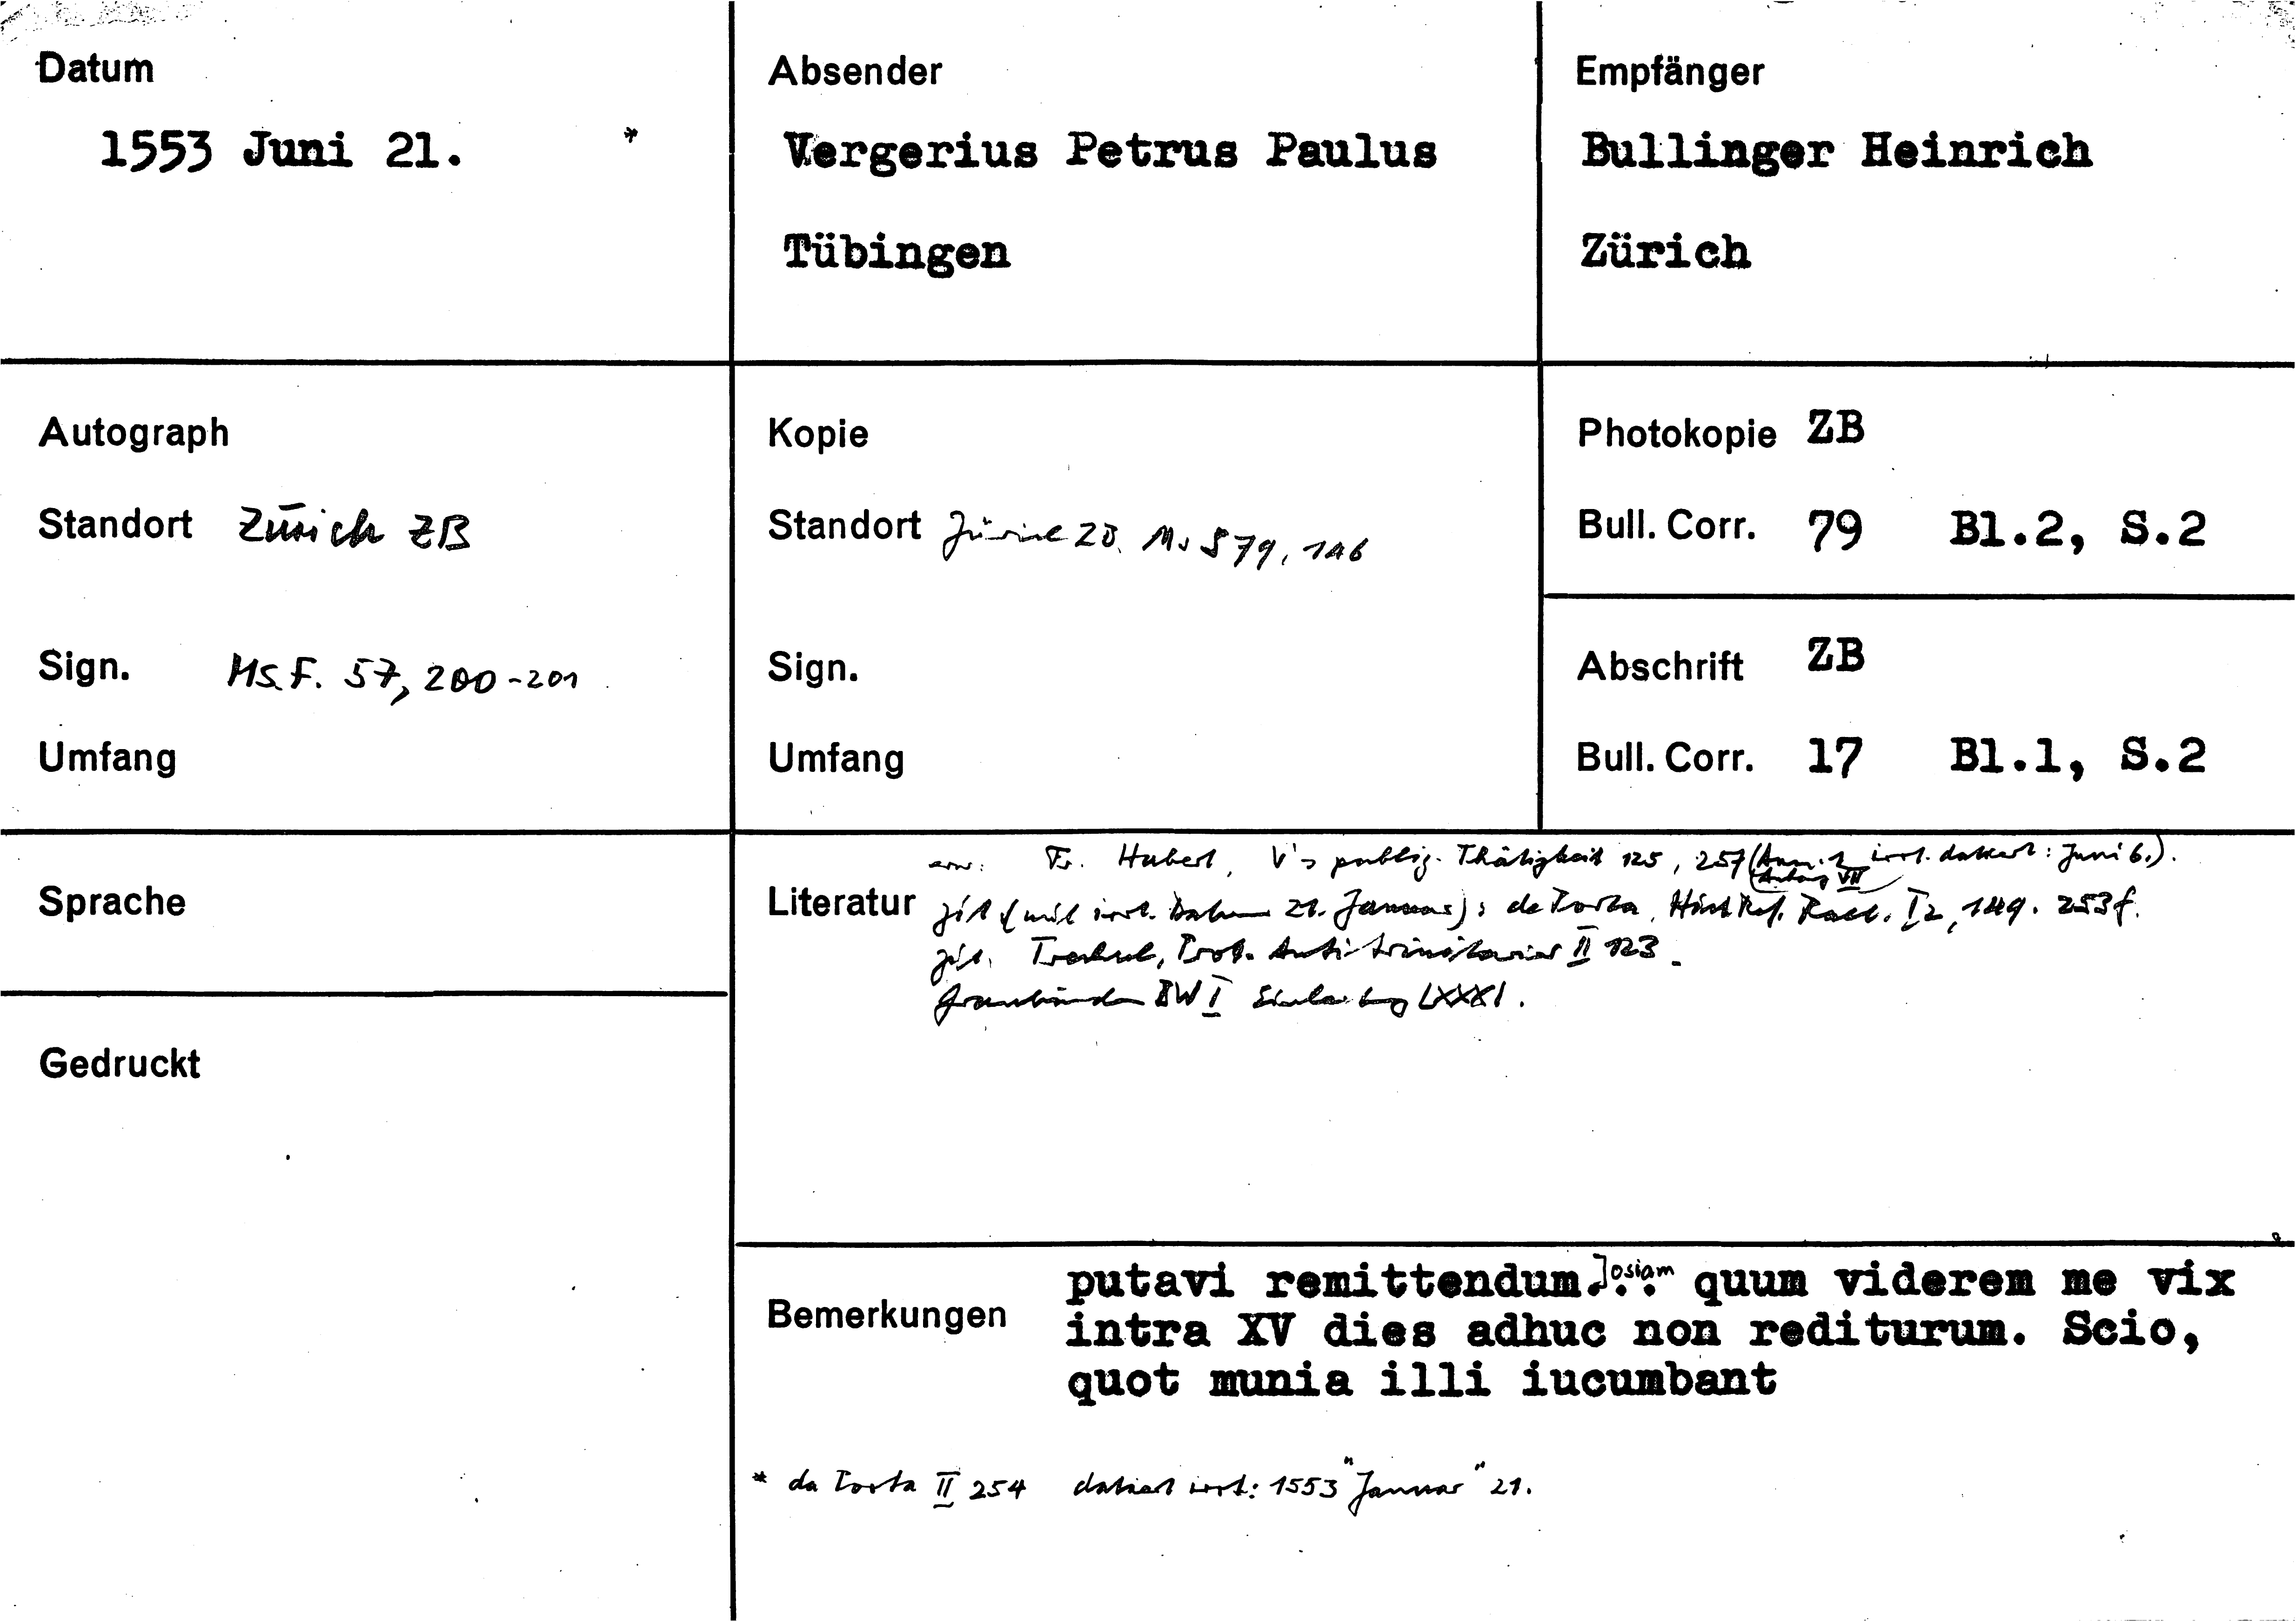 Datum
1553 Juni 21. *
Absender
Vergerius Petrus Paulus
Tübingen
Empfänger
Bullinger Heinrich
Zürich
Autograph
Standort Zürich ZB
Sign. Ms. F. 57, 200-201
Umfang
Kopie
Standort Zürich ZB. Ms S 79, 146
Sign.
Umfang
Photokopie ZB
Bull. Corr. 79 Bl.2, S.2
Abschrift ZB
Bull. Corr. 17 Bl.1, S.2
Sprache
Gedruckt
Literatur
erw: Fr. Hubert, V's publiz. Thätigkeit 125, 257 (Anm. 1 irrt. datiert: Juni 6.).
(Anhang VII)
zit (mit irrt. Datum 21. Januar): de Porta, Hist Ref. Raet. I 2, 149. 253f.
zit. Trechsel, Prot. Antitrinitarier II 123.
Graubünden BW I Einleitung LXXXI.
Bemerkungen
putavi remittendum Josiam quum viderem me vix
intra XV dies adhuc non rediturum. Scio,
quot munia illi iucumbant
* da Porta II 254 datiert irrt: 1553 "Januar" 21.